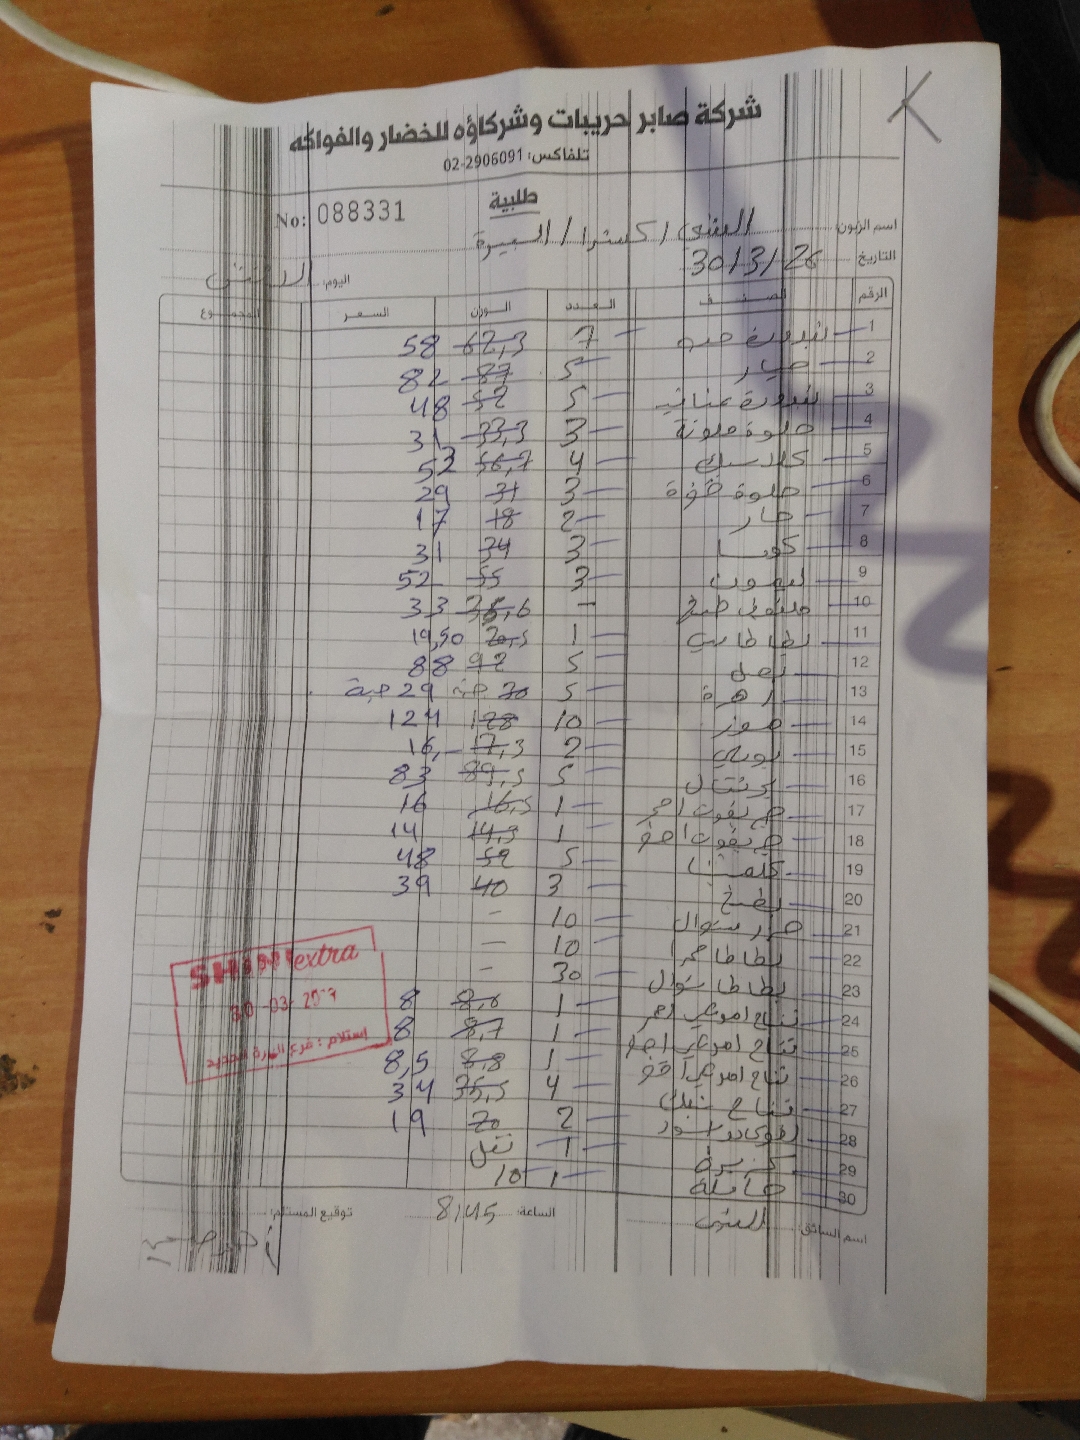 شركة صابر حريبات وشركاؤه للخضار والفواكه
تلفاكس: 02-2906091
طلبية
No: 088331
اسم الزبون الشني اكسترا / البيرة
التاريخ 30/3/26
اليوم: الاثنين
الرقم الصنف العدد الوزن السعر المجموع
1 بندورة حب 7 62,3 58
2 خيار 5 87 82
3 بندورة عناقيد 5 52 48
4 حلوة ملونة 3 33,3 31
5 كلاسيك 4 56,7 52
6 حلوة 3 31 29
7 حار 2 18 17
8 كوسا 3 34 31
9 ليمون 3 55 52
10 ملفوف - 33
11 بطاطا 1 20,5 19,50
12 بصل 5 92 88
13 زهرة 5 30 حبة 29 حبة
14 موز 10 128 124
15 بوملي 2 17,3 16,-
16 برتقال 5 89,5 83
17 جريفوت احمر 1 16,5 16
18 جريفوت 1 14,3 14
19 كلمنتينا 5 52 48
20 بطيخ 3 40 39
21 جزر شوال 10 -
22 بطاطا حمرا 10 -
23 بطاطا شوال 30 -
24 تفاح امريكي احمر 1 8,8 8
25 تفاح امريكي 1 8,7 8
26 تفاح امريكي 1 8,8 8,5
27 تفاح 4 35,5 34
28 2 20 19
29 كزبرة 1 نقل
30 1 10
SHINI extra
30-03-
استلام : فرع البيرة الجديد
اسم السائق: الشني
الساعة: 8:45
توقيع المستلم: